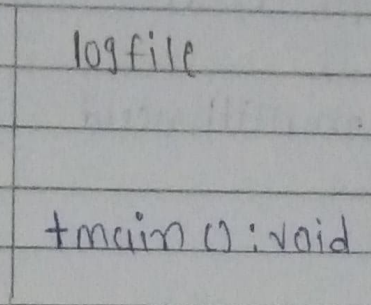 logfile
+main () : void